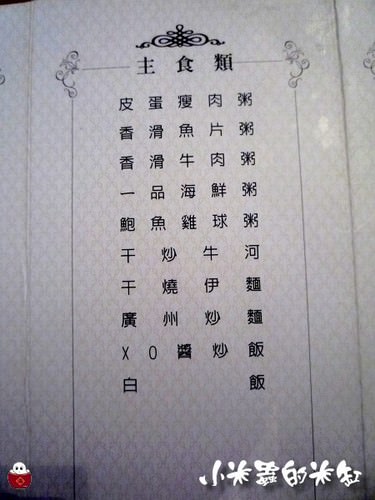 主食類
皮蛋瘦肉粥
香滑魚片粥
香滑牛肉粥
一品海鮮粥
鮑魚雞球粥
干炒牛河
干燒伊麵
廣州炒麵
XO醬炒飯
白飯
小米蟲的米缸